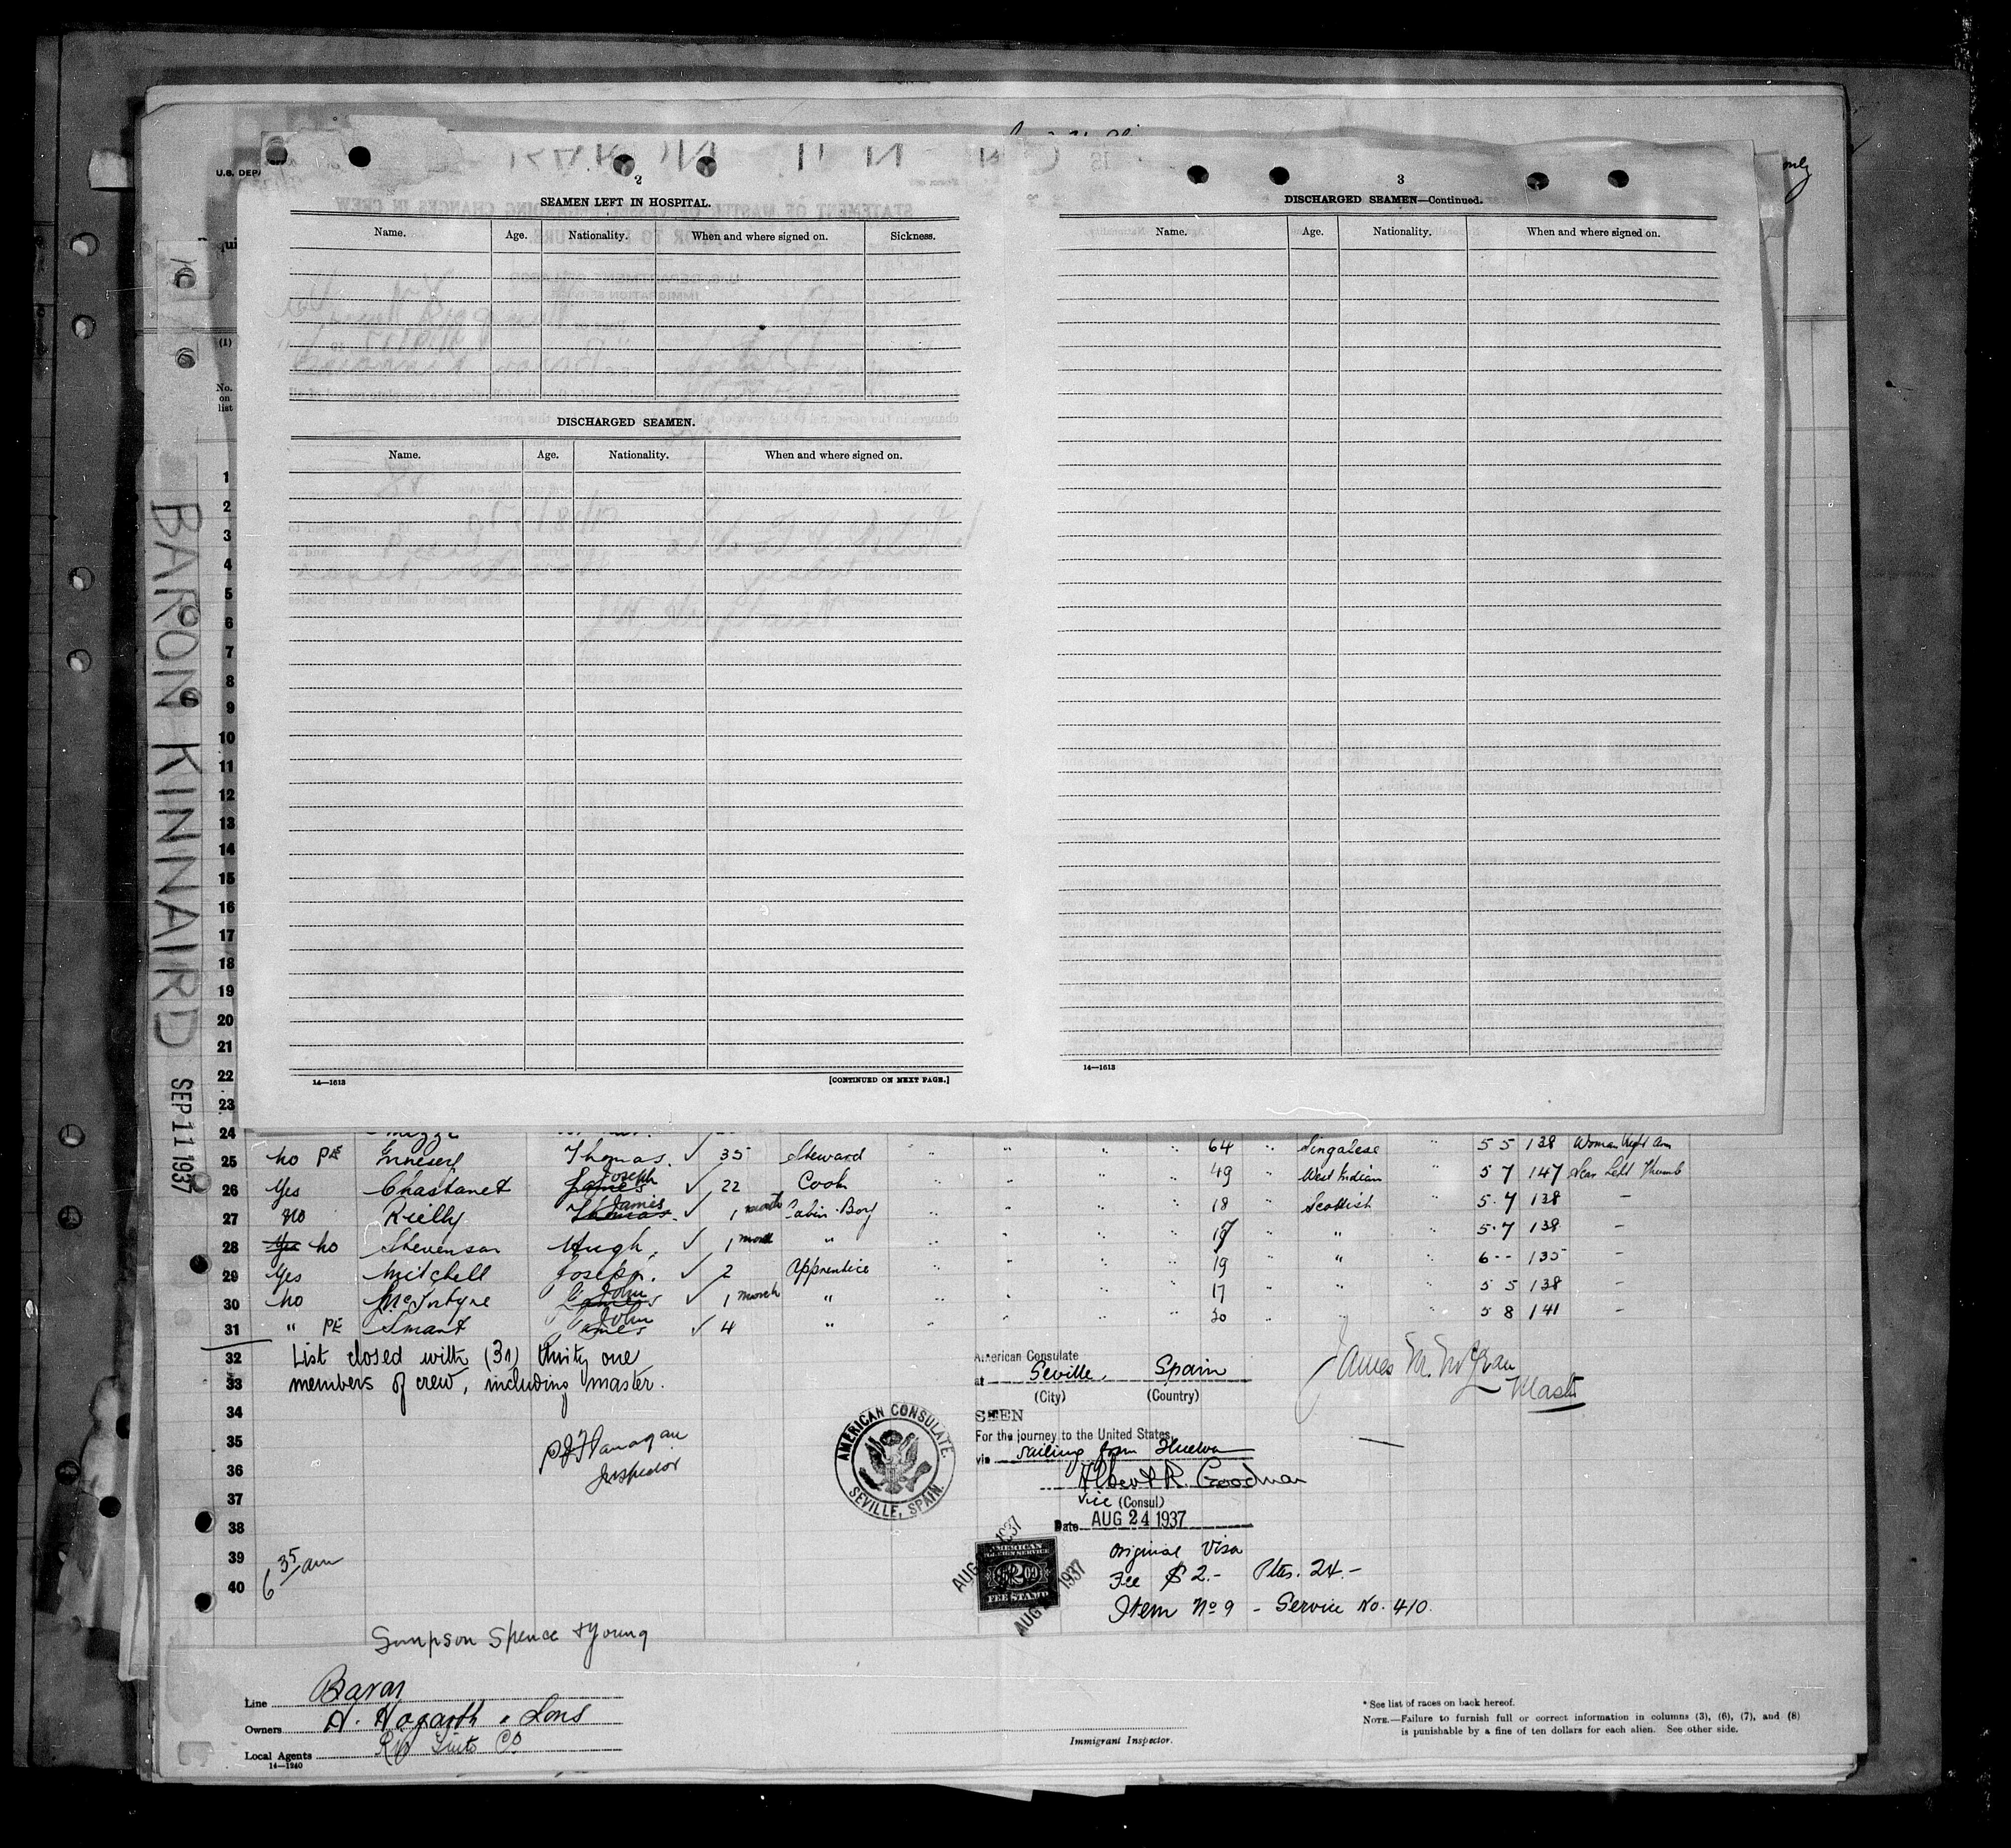 U.S. DEPA
only
2
SEAMEN LEFT IN HOSPITAL.
Name. Age. Nationality. When and where signed on. Sickness.
DISCHARGED SEAMEN.
Name. Age. Nationality. When and where signed on.
14—1613 [CONTINUED ON NEXT PAGE.]
3
DISCHARGED SEAMEN—Continued.
Name. Age. Nationality. When and where signed on.
14—1613
(1)
No. on list
BARON KINNAIRD SEP 11 1937
1
2
3
4
5
6
7
8
9
10
11
12
13
14
15
16
17
18
19
20
21
22
23
24
25 no PE Thomas. ✓ 35 Steward " " " " 64 " Singalese " 5 5 138 Woman Right Arm
26 Yes Chastanet James Joseph ✓ 22 Cook " " " " 49 " West Indian " 5 7 147 Scar Left Thumb
27 no Reilly Thomas James ✓ 1 month Cabin Boy " " " " 18 " Scottish " 5.7 138 —
28 Yes no Stevenson Hugh. ✓ 1 month " " " " " " " 5.7 138 —
29 Yes Mitchell Joseph. ✓ 2 Apprentice " " " " 19 " " " 6 -- 135 —
30 no McIntyre James John ✓ 1 month " " " " " 17 " " " 5 5 138 —
31 " PE Smart James John ✓ 4 " " " " " 20 " " " 5 8 141 —
32 List closed with (31) thirty one
33 members of crew, including master.
34
35
36 Inspector
37
38
39
40
6 35 am
American Consulate
at Seville, Spain
(City) (Country)
SEEN
For the journey to the United States,
via sailing from Huelva
Albert R. Goodman
Vice (Consul)
Date AUG 24 1937
James M. Master
AMERICAN CONSULATE. SEVILLE, SPAIN.
AMERICAN FOREIGN SERVICE $2.00 FEE STAMP
AUG 1937
AUG 1937
Original Visa
Fee $2.- Ptas. 24.-
Item No 9 - Service No. 410.
Simpson Spence & Young
Line Baron
Owners H. Hogarth & Sons
Local Agents Rio Tinto Co
14—1240
Immigrant Inspector.
* See list of races on back hereof.
NOTE.—Failure to furnish full or correct information in columns (3), (6), (7), and (8)
is punishable by a fine of ten dollars for each alien. See other side.